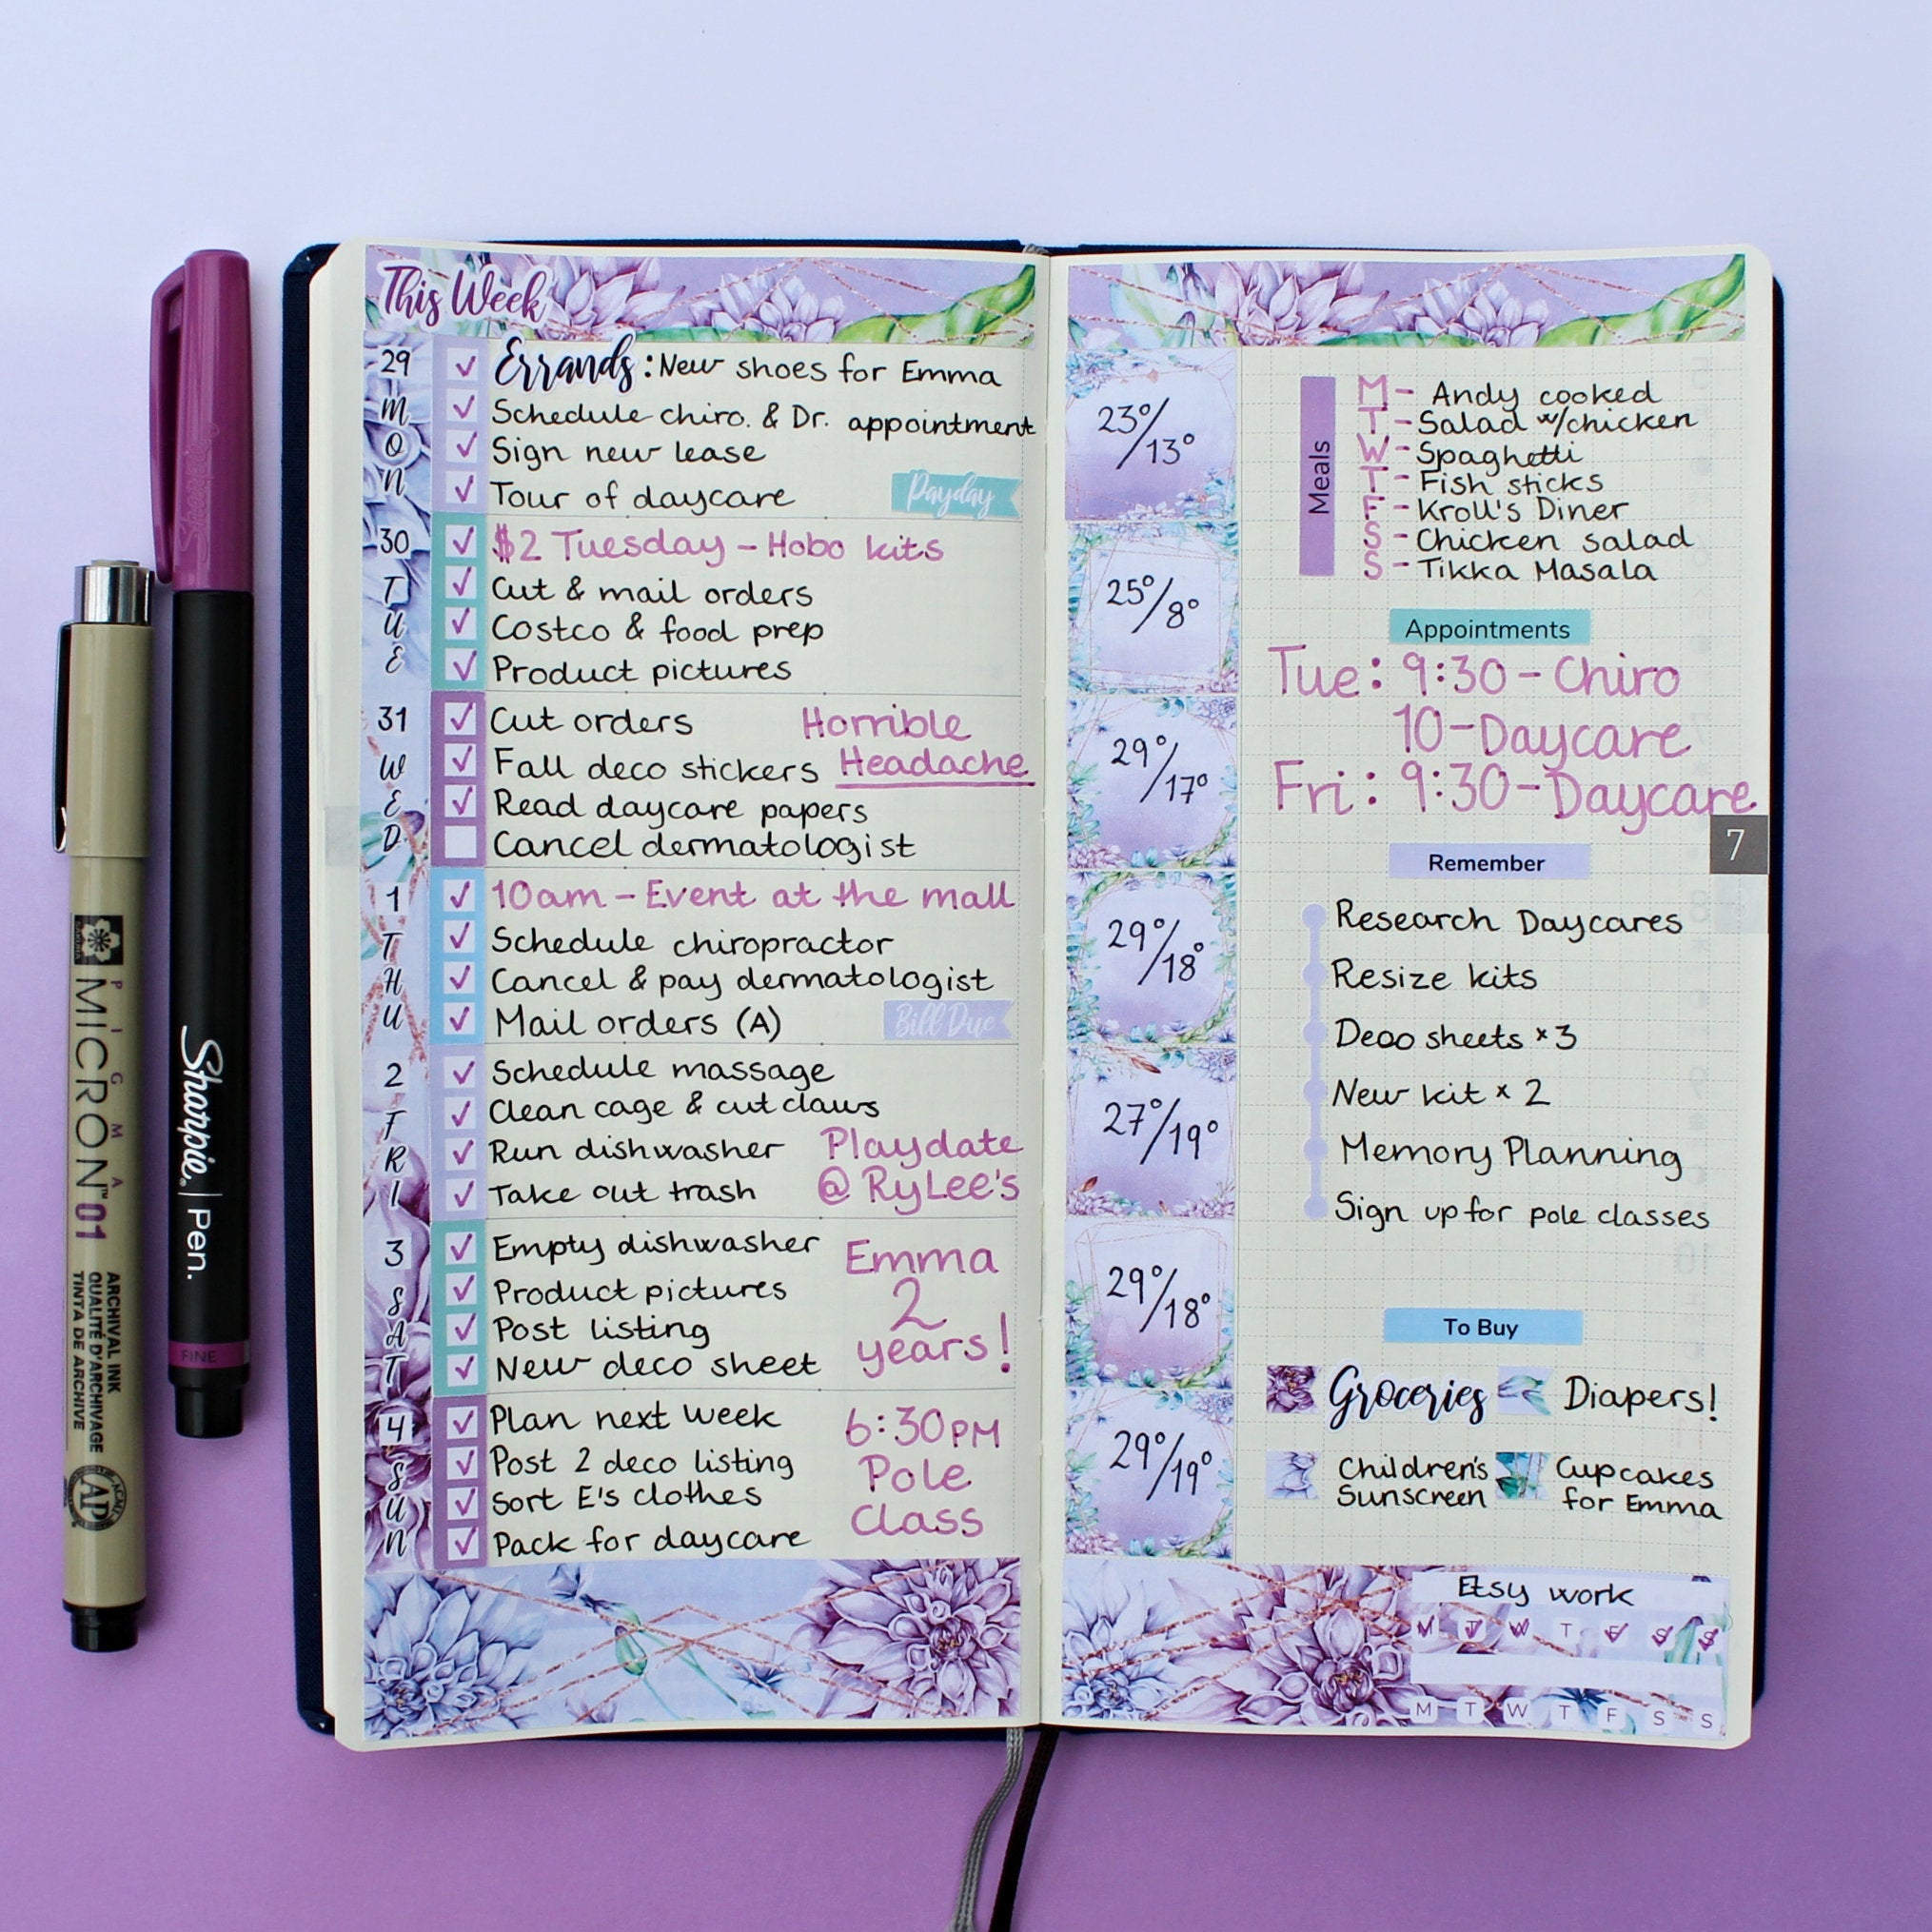 This Week
29 MON
Errands: New shoes for Emma
Schedule chiro. & Dr. appointment
Sign new lease
Tour of daycare
Payday
30 TUE
$2 Tuesday - Hobo kits
Cut & mail orders
Costco & food prep
Product pictures
31 WED
Cut orders
Fall deco stickers
Read daycare papers
Cancel dermatologist
Horrible
Headache
1 THU
10am - Event at the mall
Schedule chiropractor
Cancel & pay dermatologist
Mail orders (A)
Bill Due
2 FRI
Schedule massage
Clean cage & cut claws
Run dishwasher
Take out trash
Playdate
@ RyLee's
3 SAT
Empty dishwasher
Product pictures
Post listing
New deco sheet
Emma
2
years!
4 SUN
Plan next week
Post 2 deco listing
Sort E's clothes
Pack for daycare
6:30PM
Pole
Class
23°/13°
25°/8°
29°/17°
29°/18°
27°/19°
29°/18°
29°/19°
Meals
M - Andy cooked
T - Salad w/chicken
W - Spaghetti
T - Fish sticks
F - Kroll's Diner
S - Chicken salad
S - Tikka Masala
Appointments
Tue: 9:30 - Chiro
10 - Daycare
Fri: 9:30 - Daycare
7
Remember
Research Daycares
Resize kits
Deco sheets x 3
New kit x 2
Memory Planning
Sign up for pole classes
To Buy
Groceries
Diapers!
Children's
Sunscreen
Cupcakes
for Emma
Etsy work
M T W T F S S
M T W T F S S
Sharpie
Sharpie. | Pen.
FINE
SAKURA
PIGMA
MICRON™ 01
ARCHIVAL INK
QUALITÉ D'ARCHIVAGE
TINTA DE ARCHIVE
AP